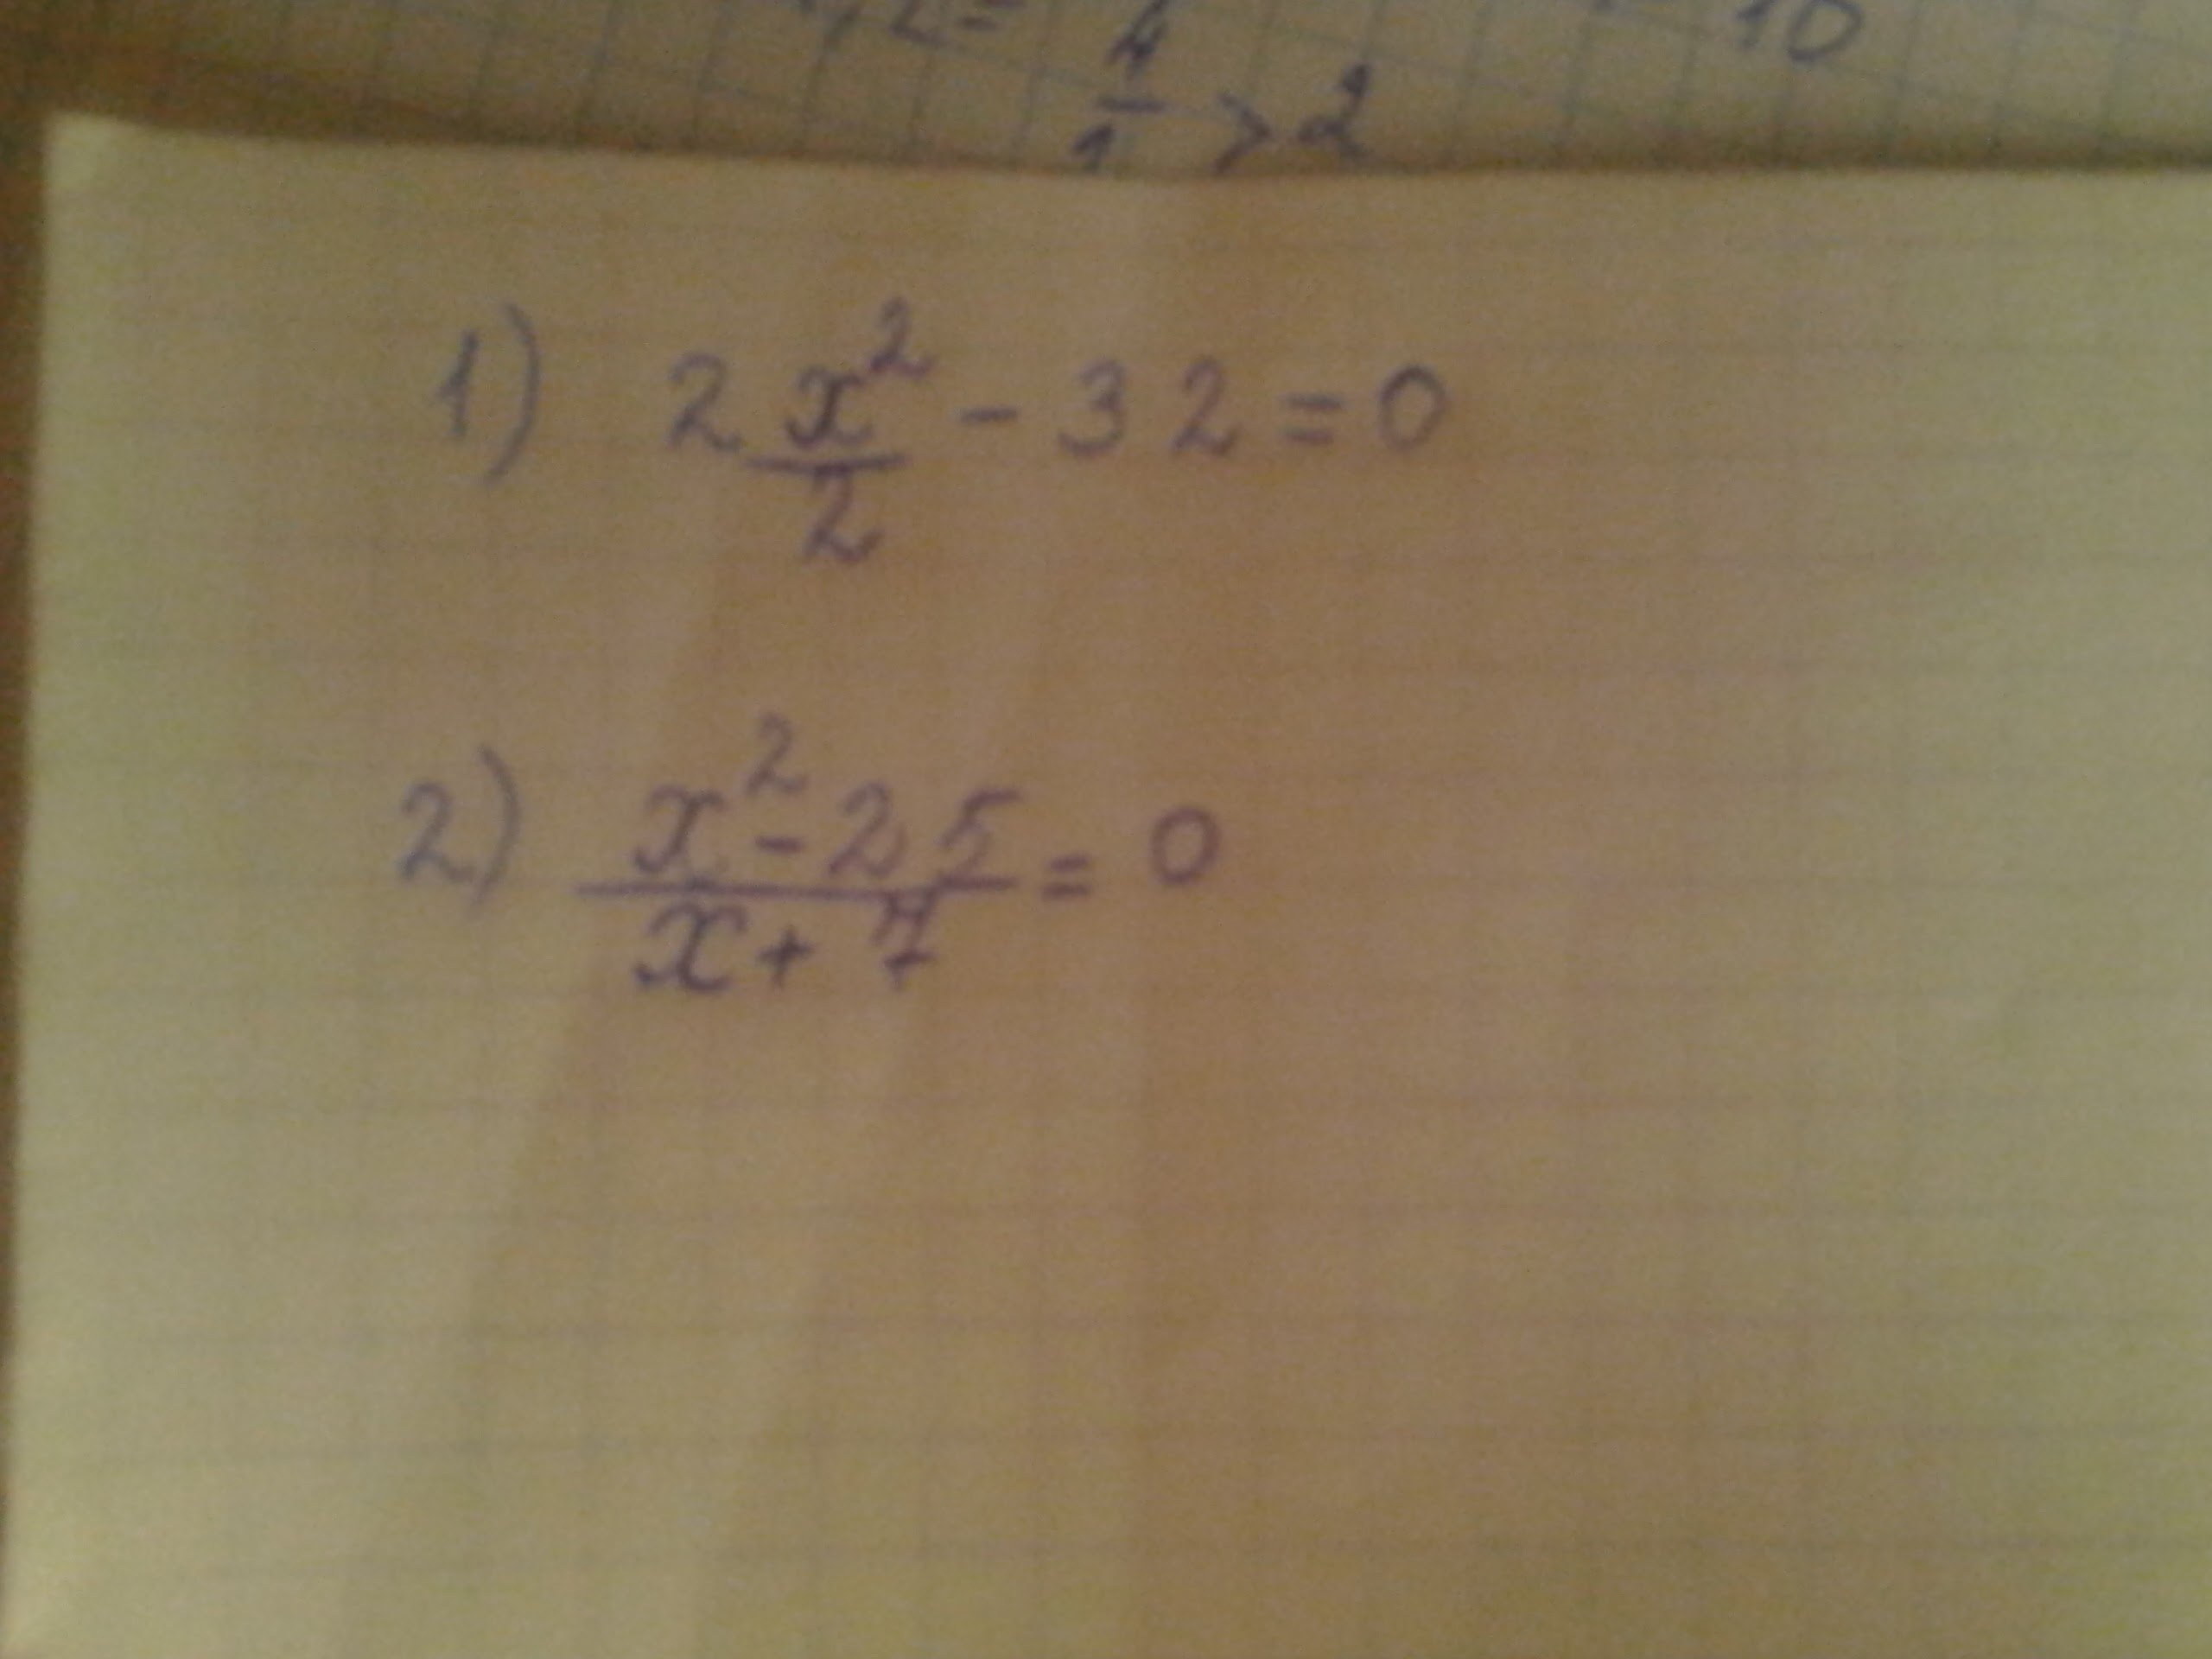 2 = 10
4/1 > 2
1) 2 x²/2 - 32 = 0
2) x² - 25 / x + 7 = 0